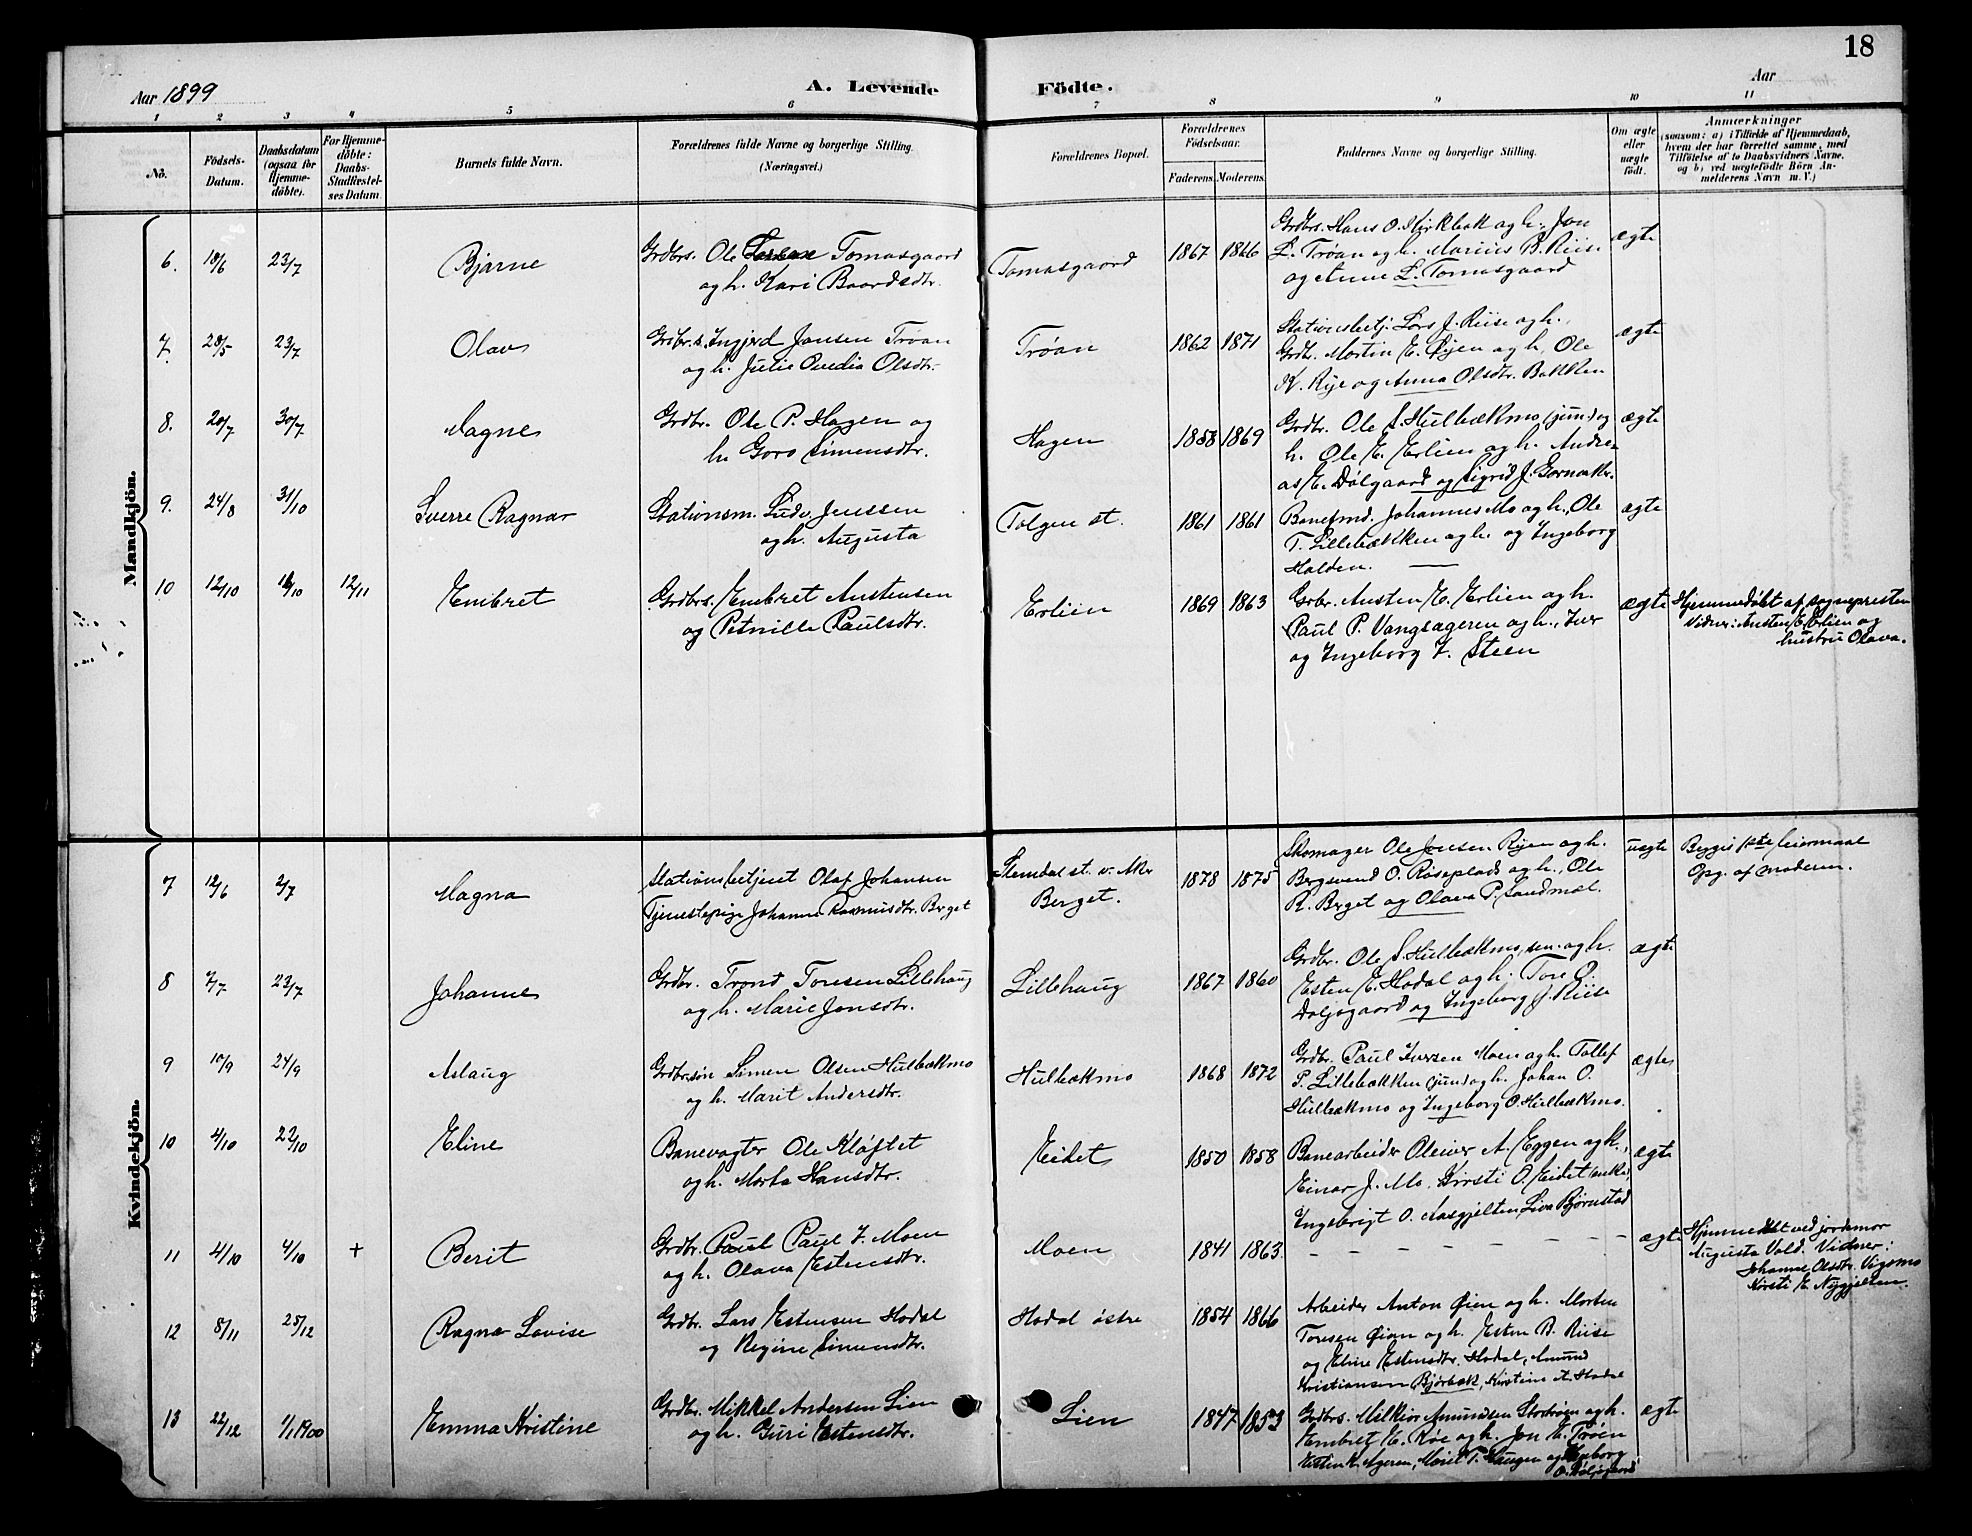 Aar 1899
A. Levende Födte.
Aar
18
1 2 3 4 5 6 7 8 9 10 11
No.
Födsels-Datum.
Daabsdatum (ogsaa for Hjemme-döbte).
For Hjemme-döbte: Daabs-Stadfæstel-ses Datum.
Barnets fulde Navn.
Forældrenes fulde Navne og borgerlige Stilling.
(Næringsvei.)
Forældrenes Bopæl.
Forældrenes Födselsaar.
Faderens. Moderens.
Faddernes Navne og borgerlige Stilling.
Om ægte eller uægte födt.
Anmærkninger
(saasom: a) i Tilfælde af Hjemmedaab,
hvem der har forrettet samme, med
Tilföielse af to Daabsvidners Navne,
og b) ved uægtefödte Börn An-
melderens Navn m. V.)
Mandkjön.
6. 18/6 23/7 Bjarne
Grdbrs. Ole Tomasgaard
og h. Kari Baardsdtr.
Tomasgaard 1867 1866
Grdbrs. Hans O. Kirkbak og h. Jon
L. Trøan og h. Marius B. Riise
og Anne L. Tomasgaard
ægte
7. 28/5 23/7 Olav
Grdbr. s. Ingjerd Jonsen Trøan
og h. Julie Ovedia Olsdtr.
Trøan 1862 1871
Stationsbetj. Lars J. Riise og h.,
Grdb. Morten E. Øyen og h. Ole
K. Rye og Anna Olsdtr. Bakken
ægte
8. 20/7 30/7 Magne
Grdbr. Ole P. Hagen og
h. Goro Simensdtr.
Hagen 1858 1869
Grdbr. Ole S. Hulbækmo (jun) og
h. Ole E. Erlien og h. Andre-
as E. Dølgaard og Sigrid J.
ægte
9. 24/8 31/10 Sverre Ragnar
Stationsm. Ludv. Jenssen
og h. Augusta
Tolgen st. 1861 1861
Baneformd. Johannes Mo og h., Ole
T. Lillebækken og h. og Ingeborg
Holden.
ægte
10 12/10 16/10 12/11 Embret
Grdbrs. Embret Austensen
og Petnille Paulsdtr.
Erlien 1869 1863
Grbr. Austen E. Erlien og h.
Paul P. Vangsageren og h., Iver
og Ingeborg I. Steen
ægte
Hjemmedøbt af sognepresten
Vidner: Austen E. Erlien og
hustru Olava.
Kvindekjön.
7 12/6 2/7 Magna
Stationsbetjent Olaf Johansen
Tjenestepige Johanne Rasmusdtr. Berget
Stemdal st. v. Aker
Berget.
1878 1875
Skomager Ole Jonsen Ryen og h.
Bergsvend O. Røseplads og h., Ole
R. Berget og Olava P. Sandmæl.
uægte
Begges 1ste leiermaal
Opg. af moderen.
8 7/7 23/7 Johanne
Grdbr. Trond Toresen Lillehaug
og h. Marie Jonsdtr.
Lillehaug 1867 1860
Grdbr. Ole S. Hulbækmo, sen. og h.
Esten E. Hodal og h. Tore O.
Doljogaard og Ingeborg J. Riise
ægte
9 10/9 24/9 Aslaug
Grdbr.søn Simen Olsen Hulbækmo
og h. Marit Andersdtr.
Hulbækmo 1868 1872
Grdbr. Paul Iversen Moen og h. Tollef
P. Lillebækken (jun) og h. Johan O.
Hulbækmo og Ingeborg O. Hulbækmo.
ægte
10 4/10 22/10 Eline
Banevogter Ole Kløftet
og h. Marta Hansdtr.
Eidet 1850 1858
Banearbeider Oleiver A. Eggen og h.,
Einar J. Mo, Kirsti O. Eidet (enke),
Ingebrigt O. Aasgjelten, Liva Bjørnstad
ægte
11 4/10 4/10 + Berit
Grdbr. Paul Paul I. Moen
og h. Olava Estensdtr.
Moen 1841 1863
– – – – – – – –
ægte
Hjemmedøbt ved jordemor
Augusta Vold. Vidner:
Johanne Olsdtr. Vigsmo
Kirsti E. Nygjelten.
12 8/11 25/12 Ragna Lovise
Grdbr. Lars Estensen Hodal
og Regine Simensdtr.
Hodal østre 1854 1866
Arbeider Anton Øien og h. Morten
Toresen Øian og h. Esten B. Riise
og Eline Estensdtr. Hodal, Amund
Kristiansen Bjørbæk, Kirstine A. Hodal
13 22/12 1/1 1900 Emma Kristine
Grdbr. Mikkel Andersen Lien
og h. Guri Estensdtr.
Lien 1847 1853
Grdbrs. Melkior Amundsen Storrøen og h.
Embret E. Røe og h. Jon E. Trøen
Ageren, Marit T. Haugen og Ingeborg
ægte